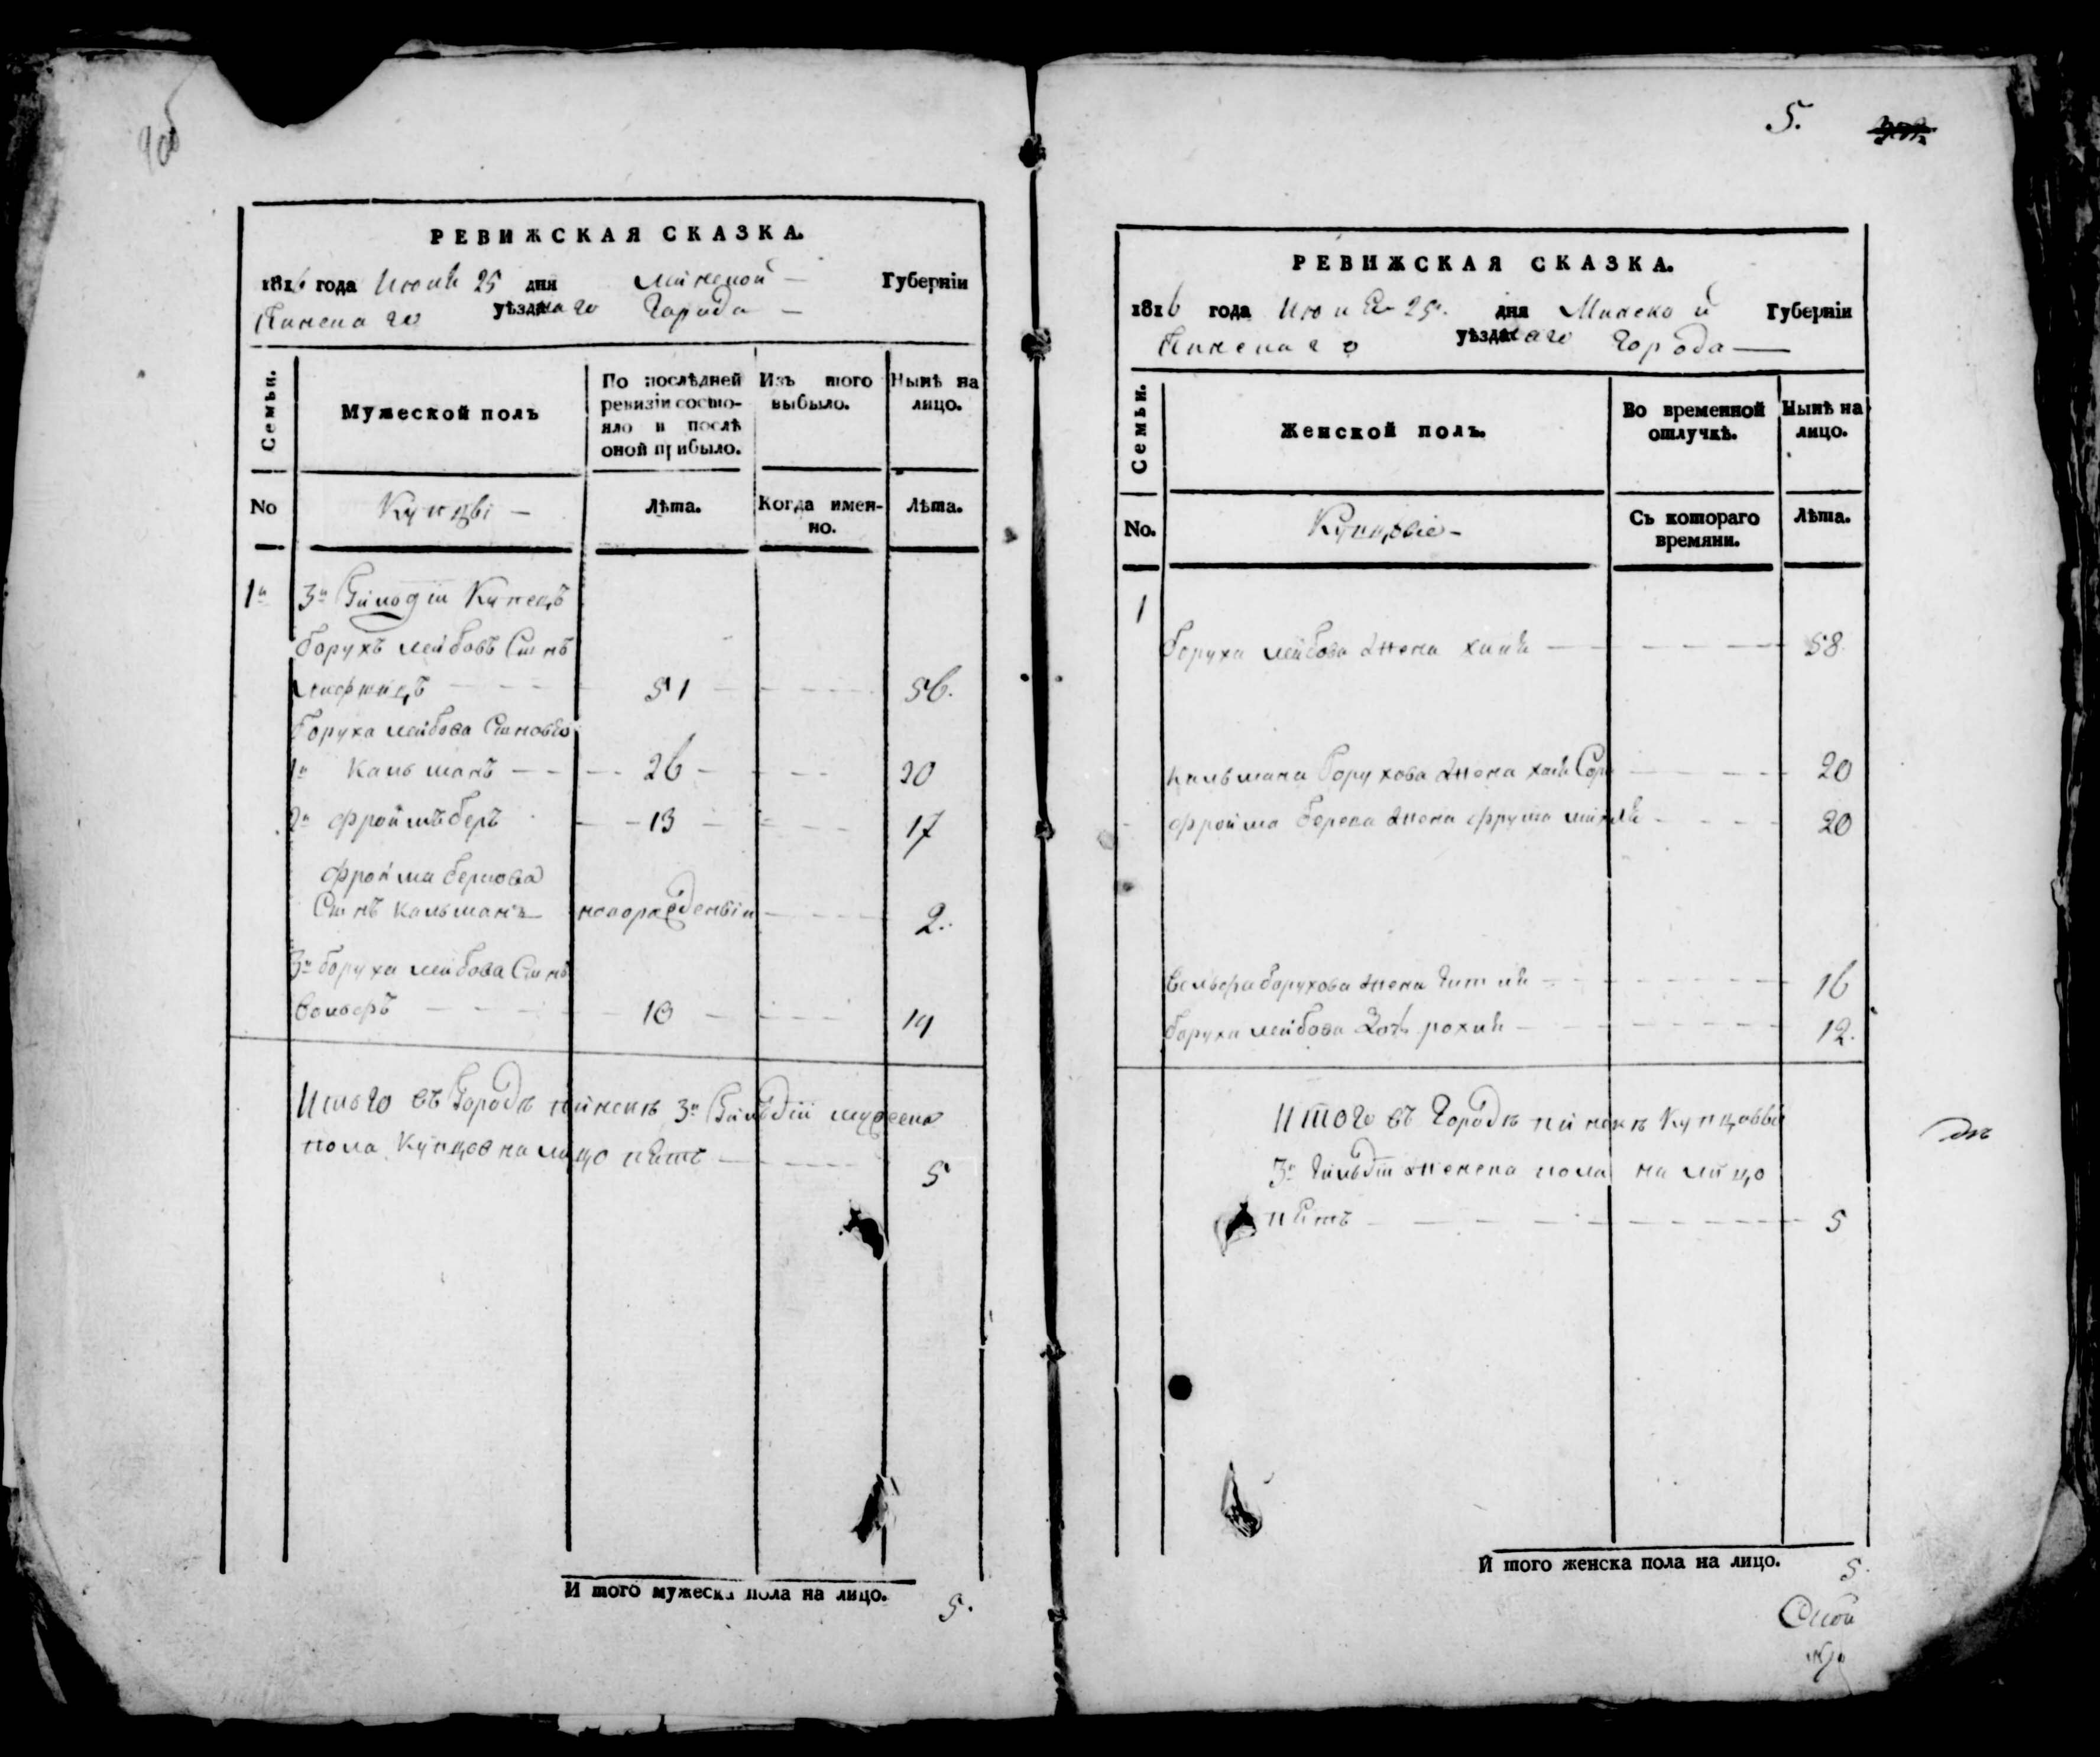 5.
РЕВИЖСКАЯ СКАЗКА.
1816 года Июня 25 дня Минской — Губерніи
Пинскаго уѣзднаго Города —
Семьи.
Мужеской полъ
По послѣдней ревизіи состояло и послѣ оной прибыло.
Изъ того выбыло.
Нынѣ на лицо.
No
Купцы —
Лѣта.
Когда именно.
Лѣта.
1й 3й Гильдіи Купецъ
Борухъ Лейбовъ Сынъ
51 56.
Боруха Лейбова Сыновья
1й Кальманъ 26 20
2й Фроймъ Беръ 13 17
Фройма Беркова
Сынъ Кальманъ новорожденный 2.
3й Боруха Лейбова Сынъ
Вольфъ 10 14
Итого въ Городѣ Пинскѣ 3й Гильдіи мужеска
пола Купцов на лицо пять 5
И того мужеска пола на лицо. 5.
РЕВИЖСКАЯ СКАЗКА.
1816 года Июня 25. дня Минской Губерніи
Пинскаго уѣзднаго Города —
Семьи.
Женской полъ.
Во временной отлучкѣ.
Нынѣ на лицо.
No.
Съ котораго времяни.
Лѣта.
1
Боруха Лейбова жена Хання 58
Кальмана Борухова жена Хая Сора 20
Фройма Берка жена Фрума 20
Вольфа Борухова жена Гитля 16
Боруха Лейбова Дочь Рохля 12.
Итого въ Городѣ Пинскѣ
3й Гильдіи женска пола на лицо
пять 5
И того женска пола на лицо. 5.